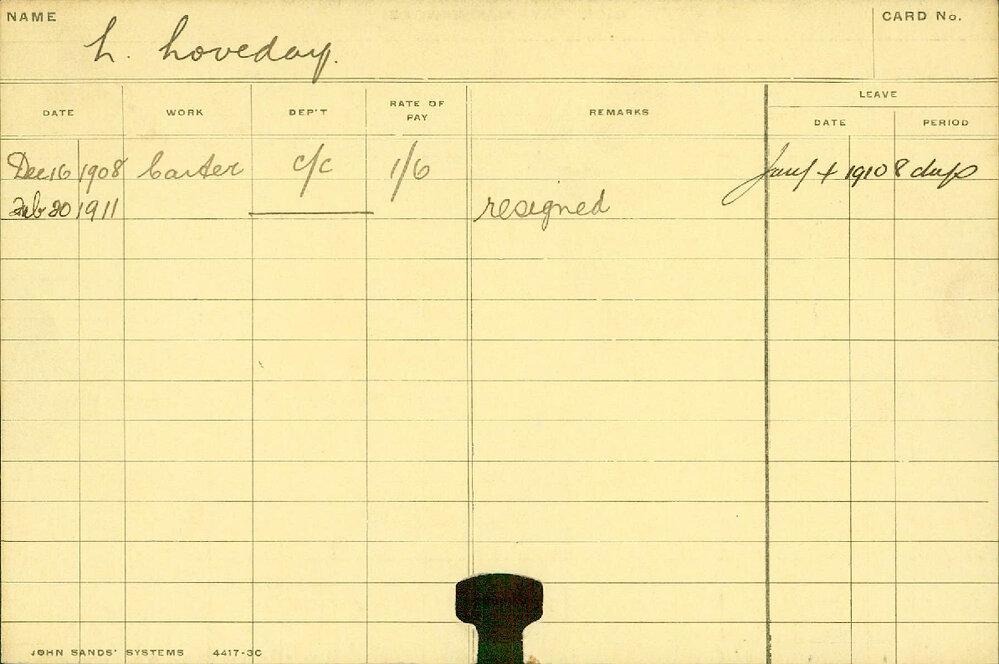 NAME
h. hoveday.
CARD No.
DATE
WORK
DEP'T
RATE OF PAY
REMARKS
LEAVE
DATE
PERIOD
Dec 16 1908 Carter c/c 1/6 Jany 4 1910 8 days
Feb 20 1911 resigned
JOHN SANDS' SYSTEMS 4417-3C